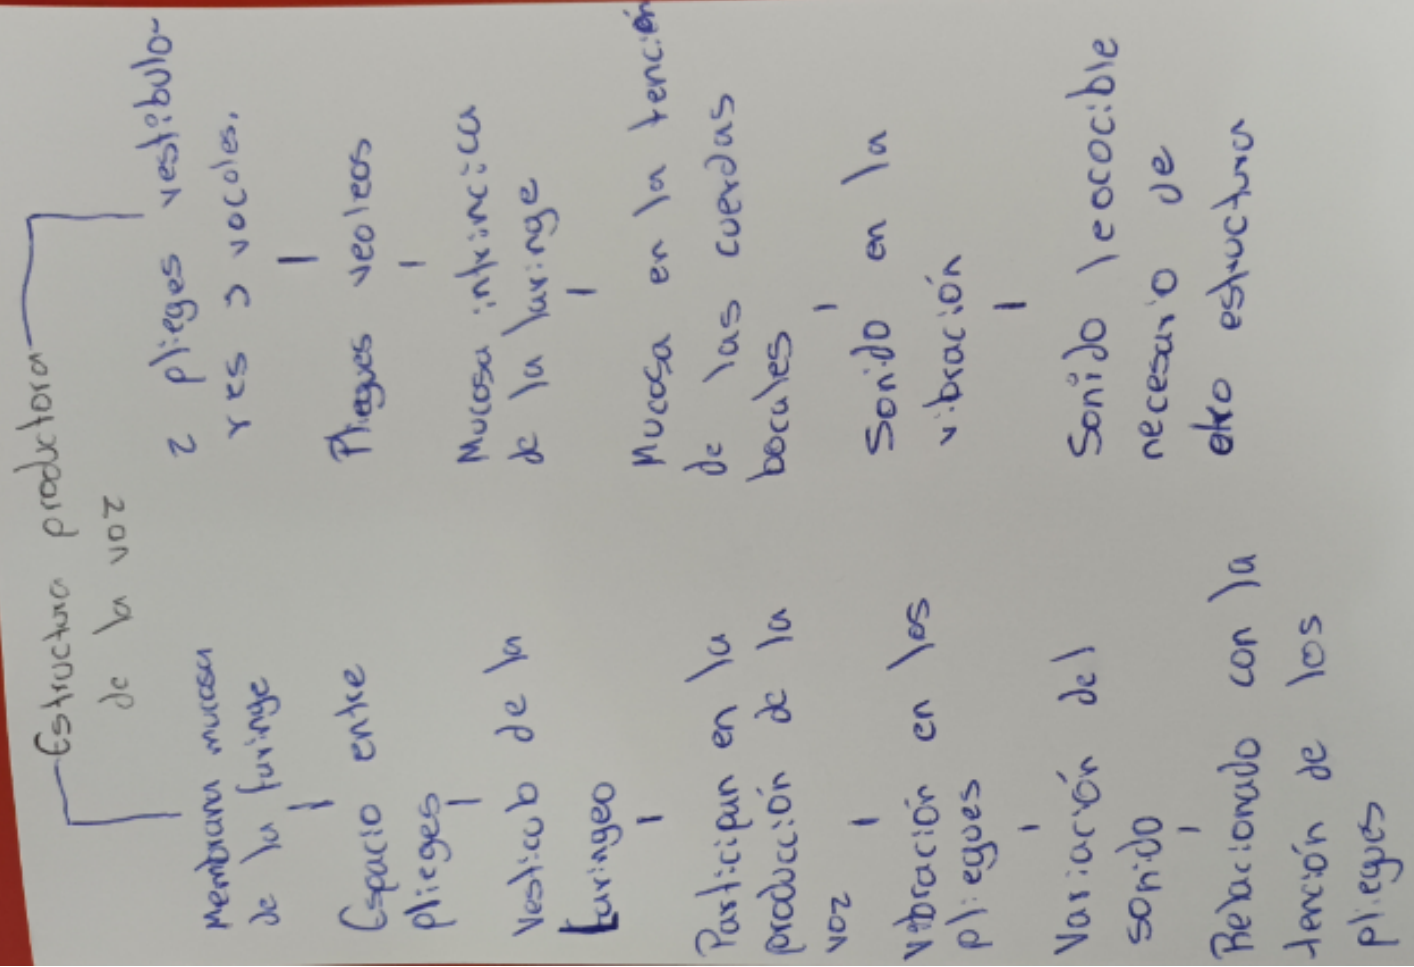 Estructura productora
de la voz
Membrana mucosa
de la faringe
Espacio entre
plieges
Vesticub de la
Laringeo
Participan en la
producción de la
voz
Vibración en los
pliegues
Variación del
sonido
Relacionado con la
tención de los
pliegues
2 plieges vestibulo-
res y vocales.
Pliegues
Mucosa intrincica
de la laringe
Mucosa en la tención
de las cuerdas
bocales
Sonido en la
vibración
Sonido
necesario de
otro estructura